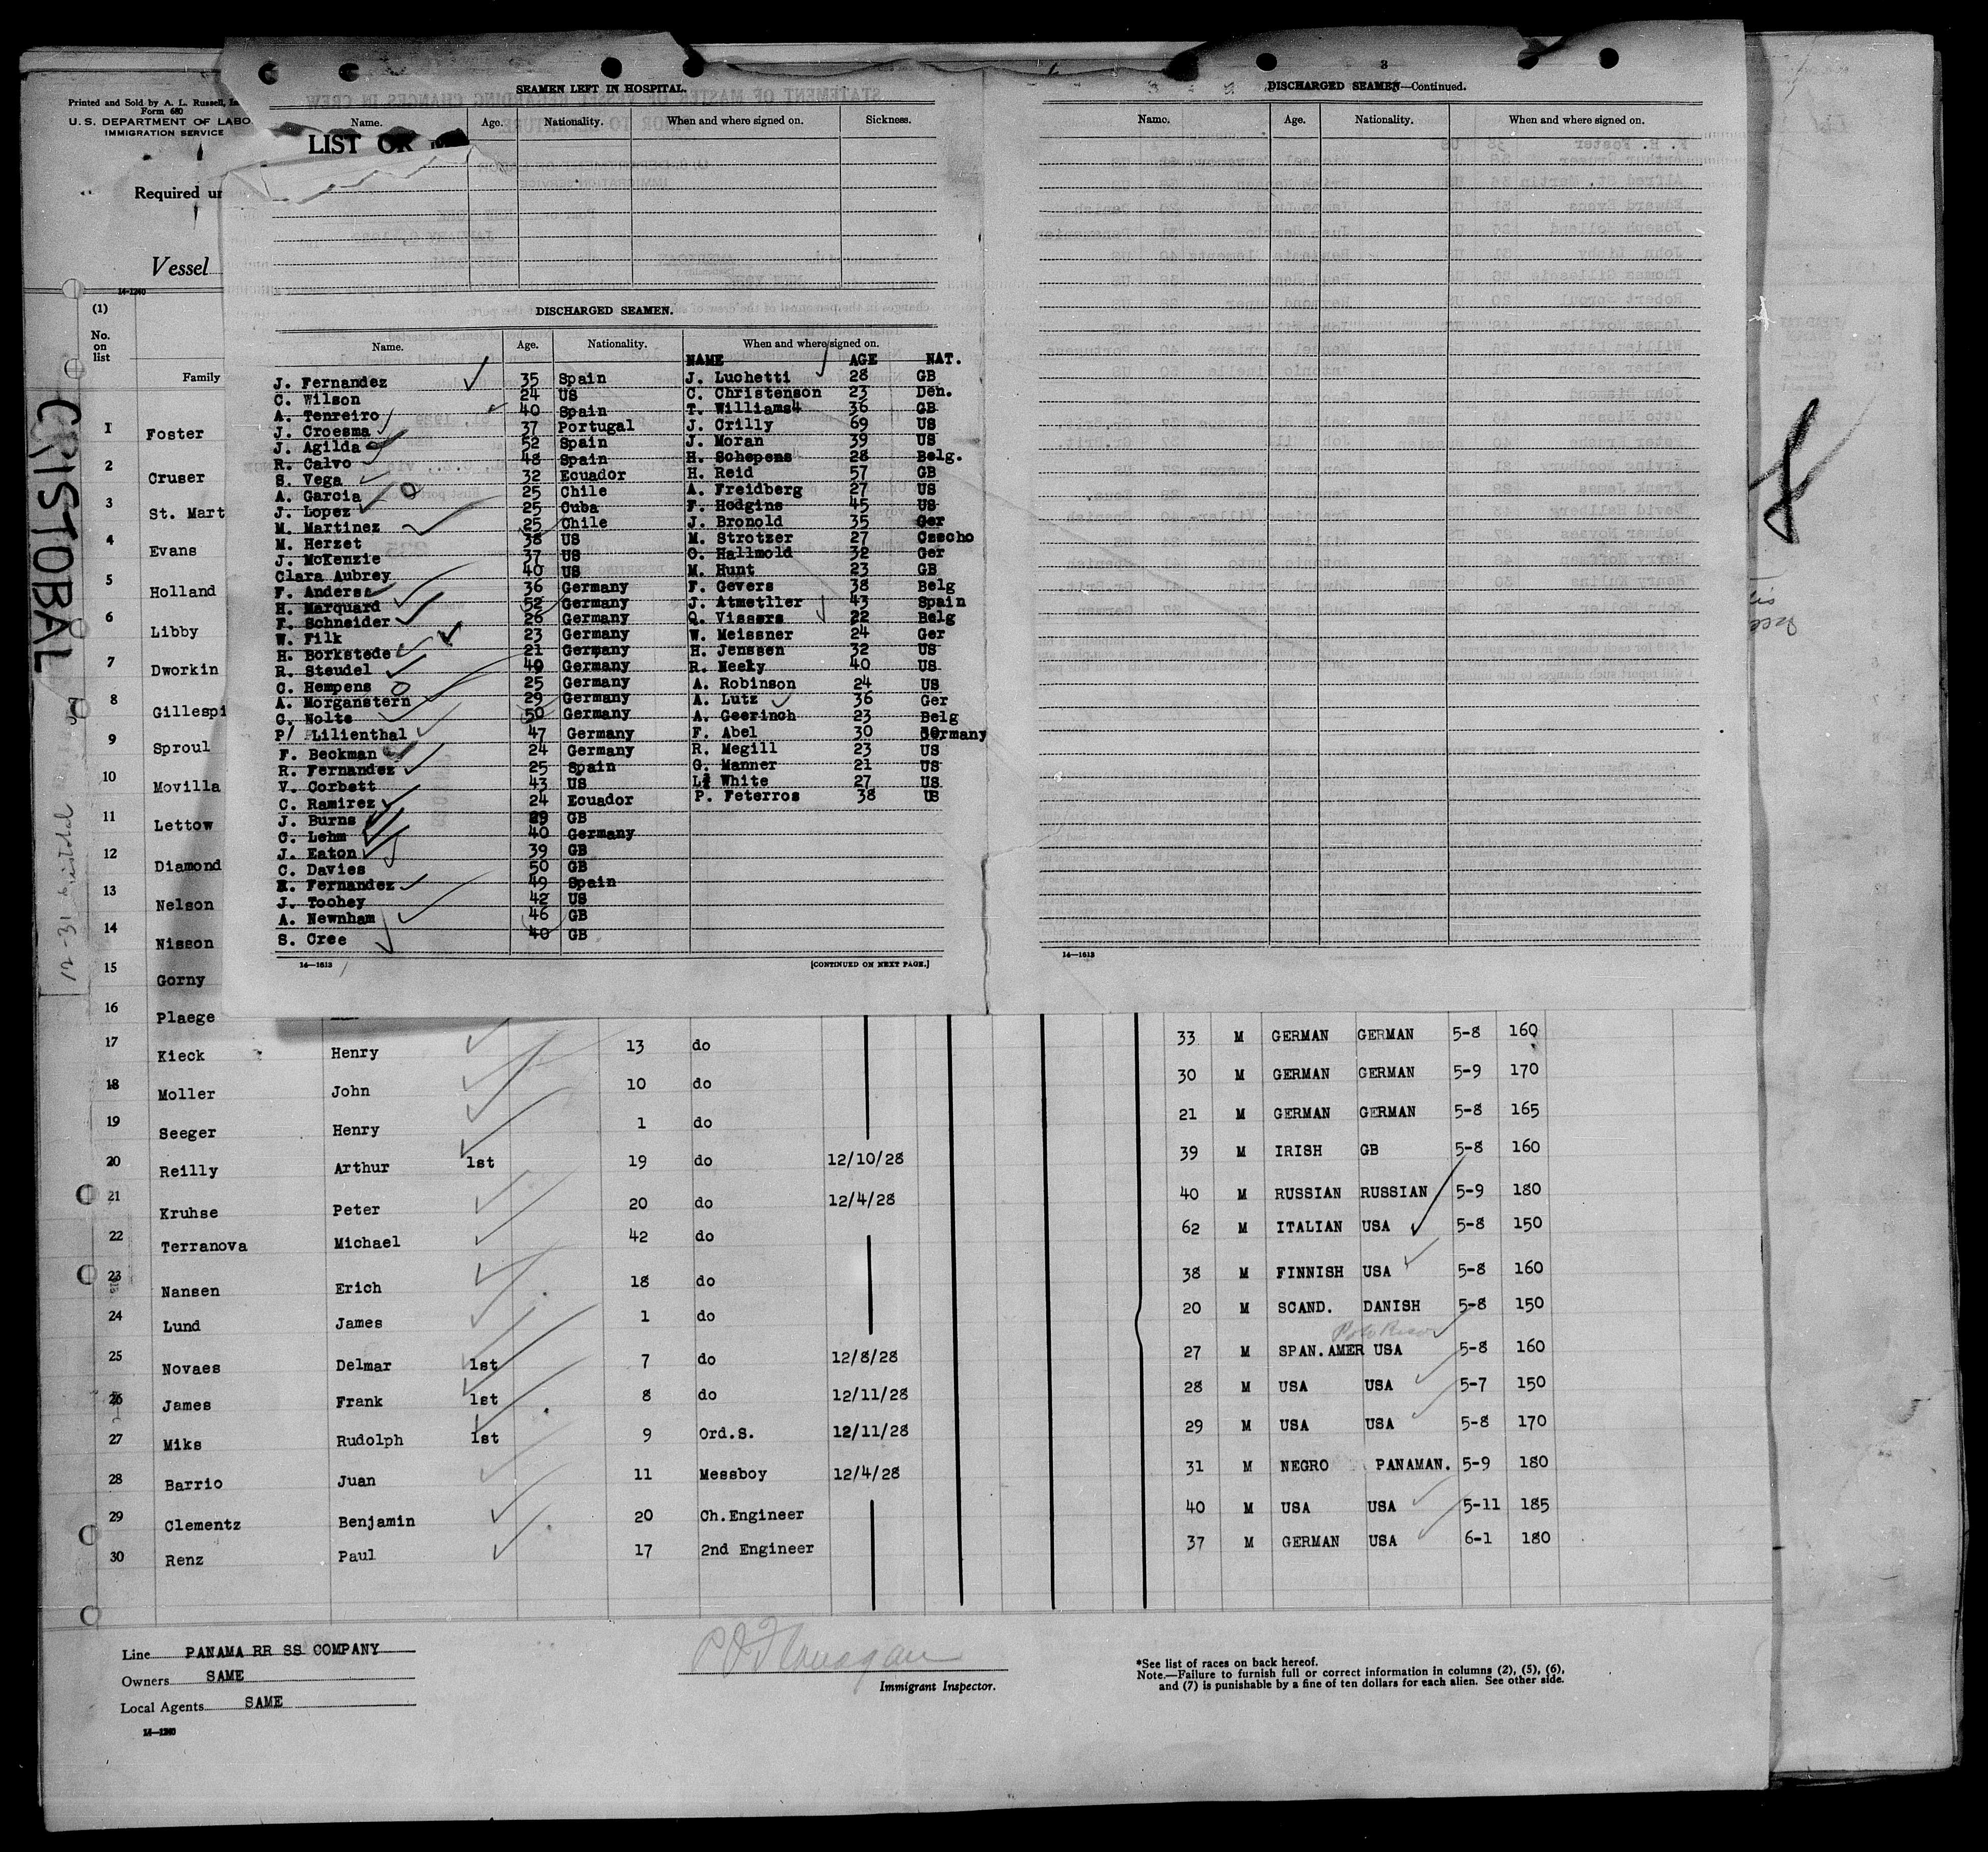 Printed and Sold by A. L. Russell, In
Form 680
U. S. DEPARTMENT OF LABO
IMMIGRATION SERVICE
LIST OR
Required un
Vessel
14-1240
(1)
No.
on
list
Family
CRISTOBAL
SEAMEN LEFT IN HOSPITAL.
Name. Age. Nationality. When and where signed on. Sickness.
DISCHARGED SEAMEN.
Name. Age. Nationality. When and where signed on.
NAME AGE NAT.
J. Fernandez 35 Spain J. Luchetti 28 GB
C. Wilson 24 US C. Christenson 23 Den.
A. Tenreiro 40 Spain T. Williams4 36 GB
J. Croesma 37 Portugal J. Crilly 69 US
J. Agilda 52 Spain J. Moran 39 US
R. Calvo 48 Spain H. Schepens 28 Belg.
S. Vega 32 Ecuador H. Reid 57 GB
A. Garcia 25 Chile A. Freidberg 27 US
J. Lopez 25 Cuba F. Hodgins 45 US
M. Martinez 25 Chile J. Bronold 35 Ger
M. Herzet 38 US M. Strotzer 27 Czecho
J. McKenzie 37 US O. Hallmold 32 Ger
Clara Aubrey 40 US M. Hunt 23 GB
F. Anders 36 Germany F. Gevers 38 Belg
H. Marquard 52 Germany J. Atmetller 43 Spain
F. Schneider 26 Germany Q. Vissers 22 Belg
W. Filk 23 Germany W. Meissner 24 Ger
H. Borkstede 21 Germany H. Jenssen 32 US
R. Steudel 40 Germany R. Neeky 40 US
C. Hempens 25 Germany A. Robinson 24 US
A. Morganstern 29 Germany A. Lutz 36 Ger
G. Nolte 50 Germany A. Geerinch 23 Belg
P/ Lilienthal 47 Germany F. Abel 30 Germany
F. Beckman 24 Germany R. Megill 23 US
R. Fernandez 25 Spain G. Manner 21 US
V. Corbett 43 US L. White 27 US
C. Ramirez 24 Ecuador P. Feterros 38 US
J. Burns 29 GB
C. Lehm 40 Germany
J. Eaton 39 GB
C. Davies 50 GB
R. Fernandez 49 Spain
J. Toohey 42 US
A. Newnham 46 GB
S. Cree 40 GB
14—1613 [CONTINUED ON NEXT PAGE.]
3
DISCHARGED SEAMEN—Continued.
Name. Age. Nationality. When and where signed on.
14—1613
1 Foster
2 Cruser
3 St. Mart
4 Evans
5 Holland
6 Libby
7 Dworkin
8 Gillespi
9 Sproul
10 Movilla
11 Lettow
12 Diamond
13 Nelson
14 Nisson
15 Gorny
16 Plaege
17 Kieck Henry 13 do 33 M GERMAN GERMAN 5-8 160
18 Moller John 10 do 30 M GERMAN GERMAN 5-9 170
19 Seeger Henry 1 do 21 M GERMAN GERMAN 5-8 165
20 Reilly Arthur 1st 19 do 12/10/28 39 M IRISH GB 5-8 160
21 Kruhse Peter 20 do 12/4/28 40 M RUSSIAN RUSSIAN 5-9 180
22 Terranova Michael 42 do 62 M ITALIAN USA 5-8 150
23 Nansen Erich 18 do 38 M FINNISH USA 5-8 160
24 Lund James 1 do 20 M SCAND. DANISH 5-8 150
25 Novaes Delmar 1st 7 do 12/8/28 27 M SPAN.AMER USA 5-8 160
26 James Frank 1st 8 do 12/11/28 28 M USA USA 5-7 150
27 Miks Rudolph 1st 9 Ord.S. 12/11/28 29 M USA USA 5-8 170
28 Barrio Juan 11 Messboy 12/4/28 31 M NEGRO PANAMAN. 5-9 180
29 Clementz Benjamin 20 Ch.Engineer 40 M USA USA 5-11 185
30 Renz Paul 17 2nd Engineer 37 M GERMAN USA 6-1 180
Line PANAMA RR SS COMPANY
Owners SAME
Local Agents SAME
14—1240
Immigrant Inspector.
*See list of races on back hereof.
Note.—Failure to furnish full or correct information in columns (2), (5), (6),
and (7) is punishable by a fine of ten dollars for each alien. See other side.